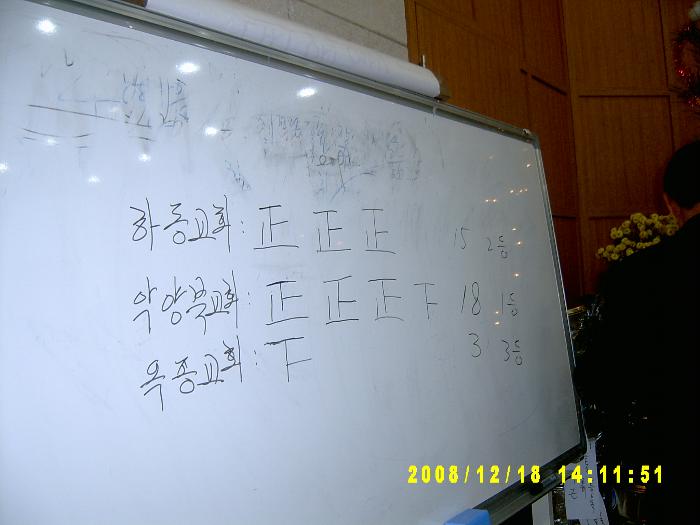 하동교회: 正 正 正 15 2등
악양북교회: 正 正 正 下 18 1등
옥종교회: 下 3 3등
2008/12/18 14:11:51